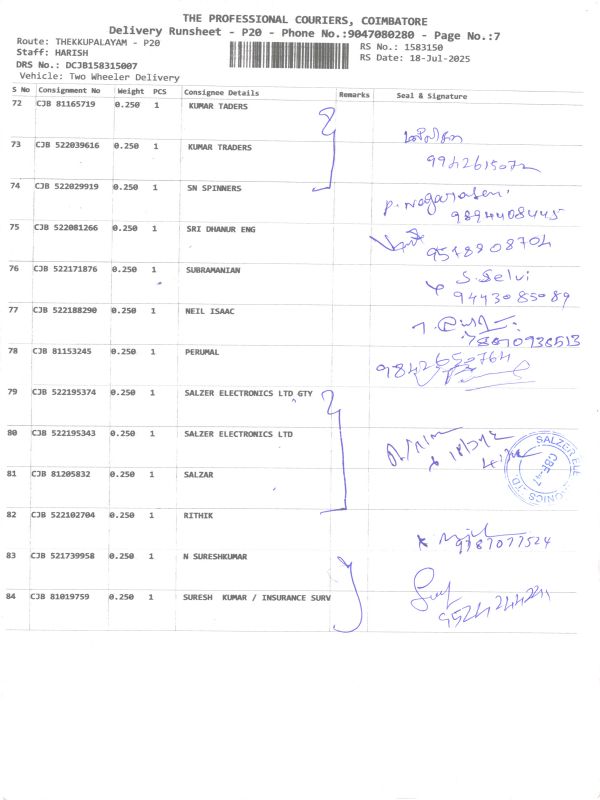 THE PROFESSIONAL COURIERS, COIMBATORE
Delivery Runsheet - P20 - Phone No.:9047080280 - Page No.:7
Route: THEKKUPALAYAM - P20
Staff: HARISH
RS No.: 1583150
DRS No.: DCJB158315007
RS Date: 18-Jul-2025
Vehicle: Two Wheeler Delivery
S No Consignment No Weight PCS Consignee Details Remarks Seal & Signature
72 CJB 81165719 0.250 1 KUMAR TADERS
73 CJB 522039616 0.250 1 KUMAR TRADERS
9942615072
74 CJB 522029919 0.250 1 SN SPINNERS
P. Nagarasen.
9894408445
75 CJB 522081266 0.250 1 SRI DHANUR ENG
9578908704
76 CJB 522171876 0.250 1 SUBRAMANIAN
S. Selvi
9443085089
77 CJB 522188290 0.250 1 NEIL ISAAC
78 CJB 81153245 0.250 1 PERUMAL
9842650764
79 CJB 522195374 0.250 1 SALZER ELECTRONICS LTD GTY
80 CJB 522195343 0.250 1 SALZER ELECTRONICS LTD
81 CJB 81205832 0.250 1 SALZAR
82 CJB 522102704 0.250 1 RITHIK
9787077524
83 CJB 521739958 0.250 1 N SURESHKUMAR
84 CJB 81019759 0.250 1 SURESH KUMAR / INSURANCE SURV